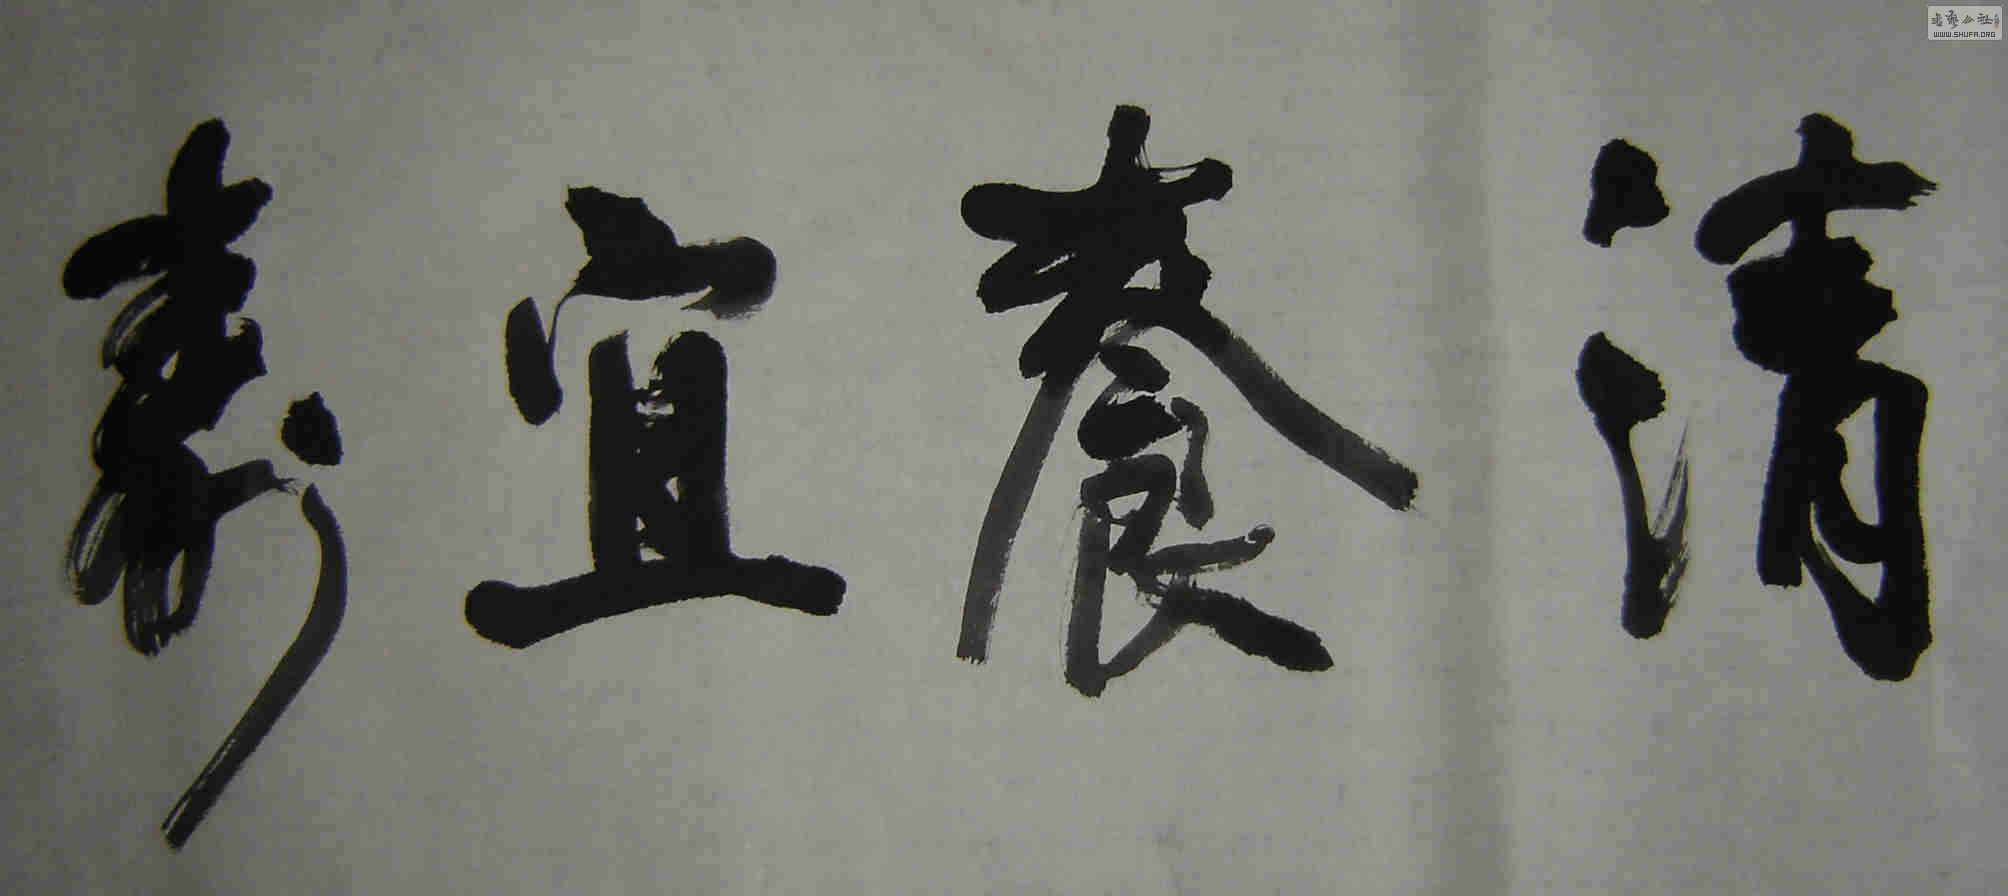 清養宜壽
书艺公社
WWW.SHUFA.ORG